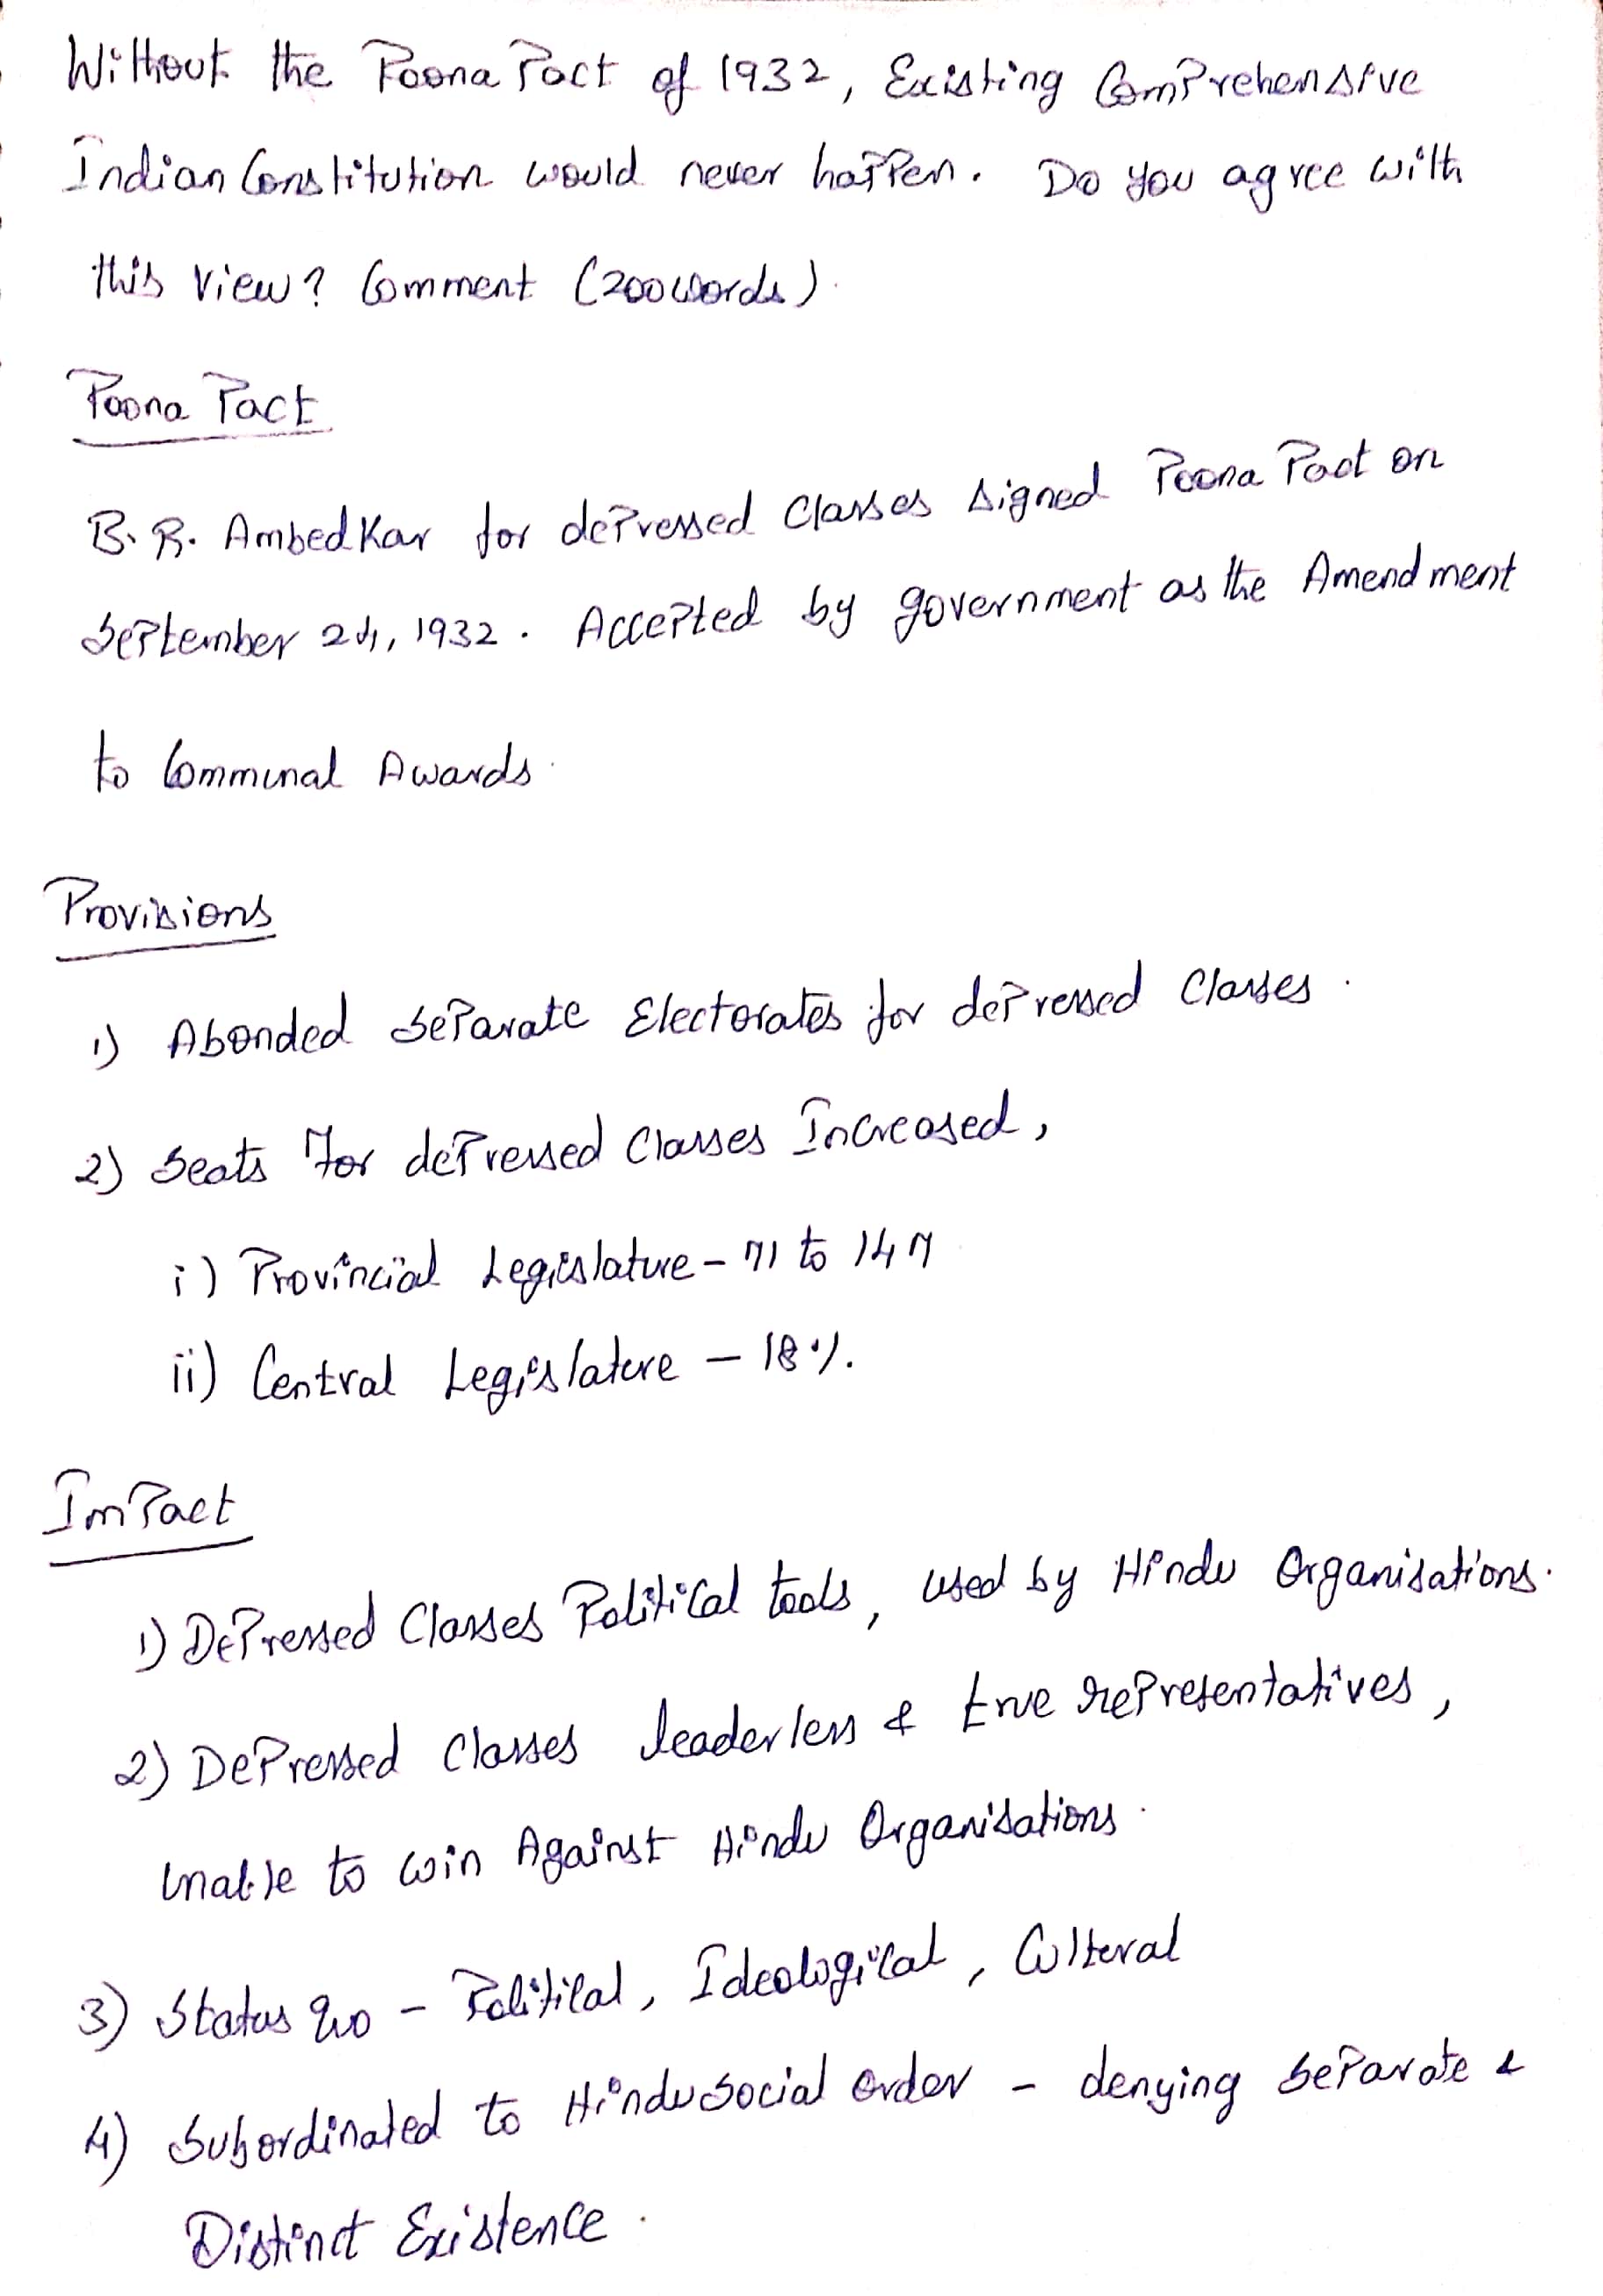 Without the Poona Pact of 1932, Existing Comprehensive
Indian Constitution would never happen. Do you agree with
this view? Comment (200words).
Poona Pact
B.R. Ambedkar for depressed classes signed Poona Pact on
September 24, 1932. Accepted by government as the Amendment
to Communal Awards.
Provisions
1) Abonded Separate Electorates for depressed Classes.
2) Seats for depressed Classes Increased,
i) Provincial Legislature - 71 to 147
ii) Central Legislature - 18%.
Impact
1) Depressed Classes Political tools, used by Hindu Organisations.
2) Depressed Classes leaderless & true representatives,
Unable to win Against Hindu Organisations.
3) Status Quo - Political, Ideological, Cultural
4) Subordinated to Hindu Social order - denying Separate &
Distinct Existence.